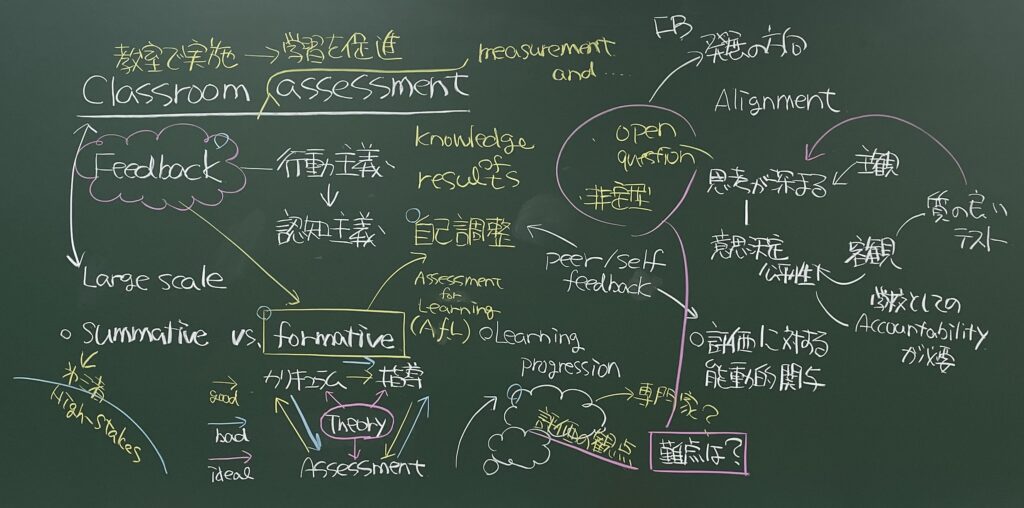 教室で実施→学習を促進
measurement
and ....
Classroom assessment
Feedback
行動主義
認知主義
knowledge
of
results
自己調整
Large scale
Assessment
for
Learning
(AfL)
Summative vs. formative
High-stakes
good
bad
ideal
カリキュラム→指導
Theory
Assessment
Learning
progression
評価の観点
専門家?
難点は?
peer/self
feedback
評価に対する
能動的関与
open
question
非定型
Alignment
思考が深まる
主観
意思決定
公平性
客観
質の良い
テスト
学校としての
Accountability
が必要